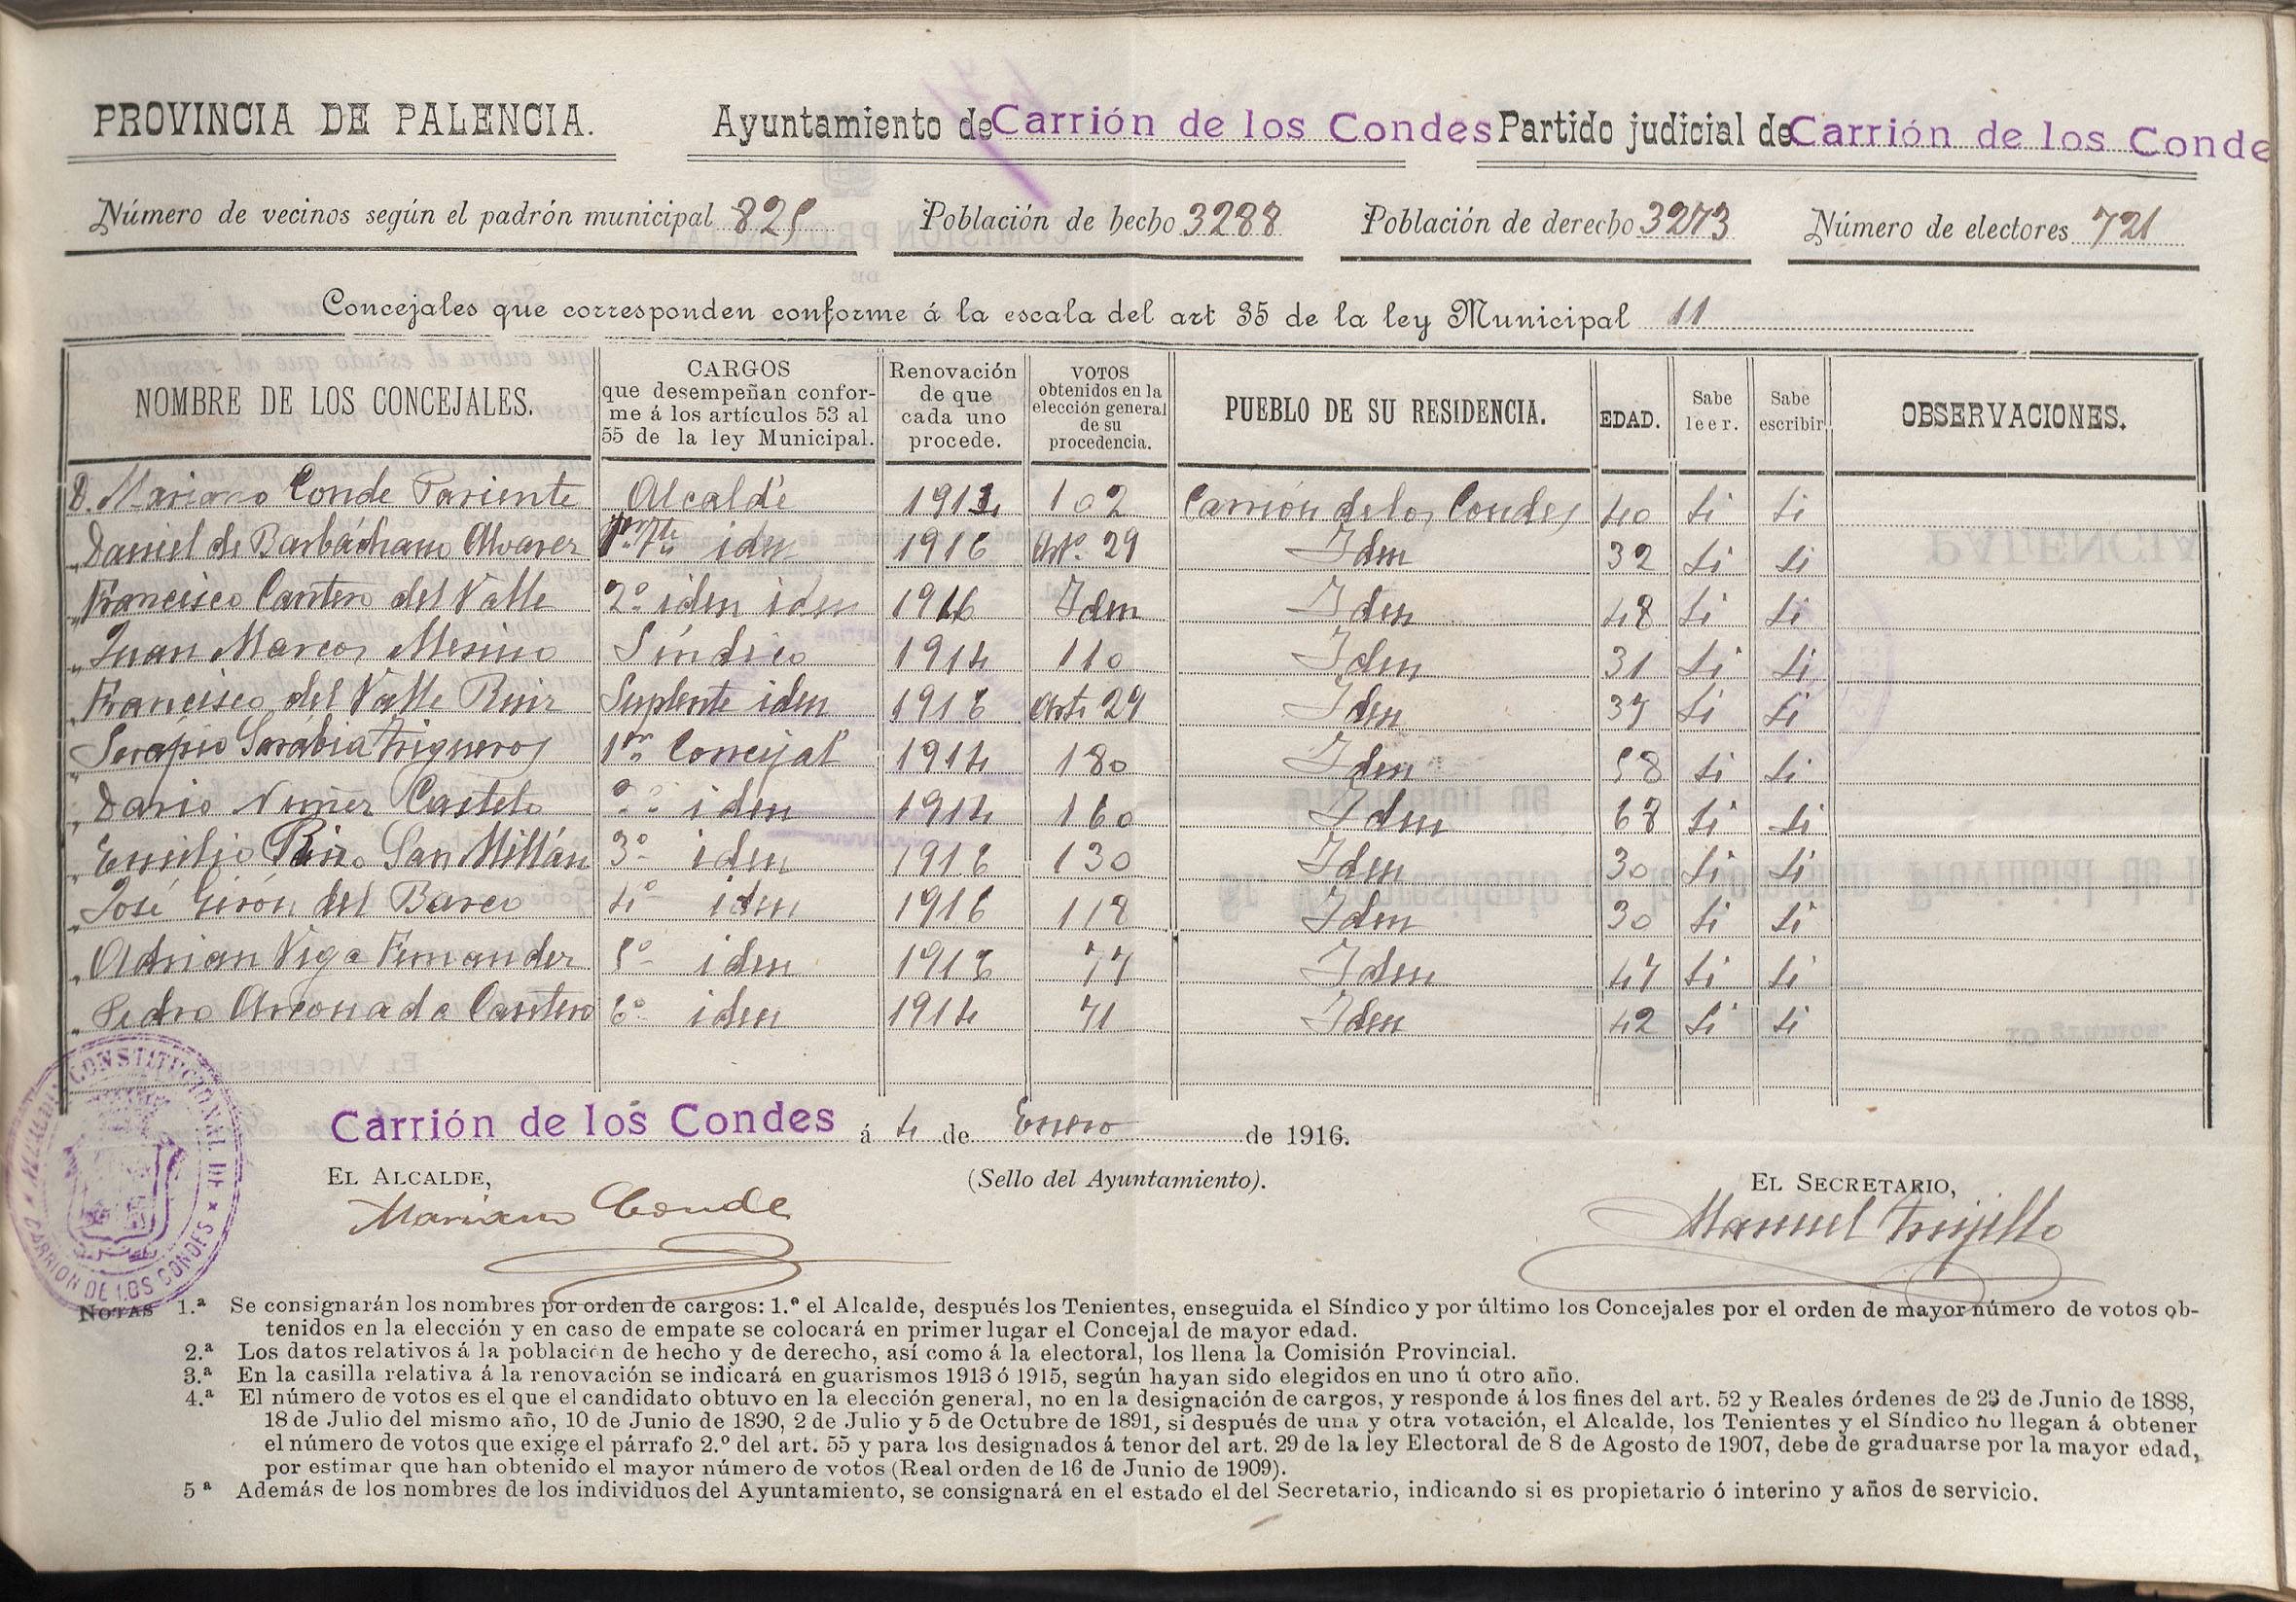 PROVINCIA DE PALENCIA. Ayuntamiento de Carrión de los Condes Partido judicial de Carrión de los Conde
Número de vecinos según el padrón municipal 825 Población de hecho 3288 Población de derecho 3273 Número de electores 721
Concejales que corresponden conforme á la escala del art 35 de la ley Municipal 11
NOMBRE DE LOS CONCEJALES.
CARGOS
que desempeñan confor-
me á los artículos 53 al
55 de la ley Municipal.
Renovación
de que
cada uno
procede.
VOTOS
obtenidos en la
elección general
de su
procedencia.
PUEBLO DE SU RESIDENCIA.
EDAD.
Sabe
leer.
Sabe
escribir
OBSERVACIONES.
D. Mariano Conde Pariente Alcalde 1914 102 Carrión de los Condes 40 Si Si
" Daniel de Barbáchano Alvarez 1er Tte iden 1916 Artº 29 Iden 32 Si Si
" Francisco Cantero del Valle 2º iden iden 1916 Iden Iden 48 Si Si
" Juan Marcos Merino Síndico 1914 110 Iden 31 Si Si
" Francisco del Valle Ruiz Suplente iden 1916 Artº 29 Iden 37 Si Si
" Serapio Sarabia Trigueros 1er Concejal 1914 180 Iden 58 Si Si
" Dario Nuñez Castelo 2º iden 1914 160 Iden 68 Si Si
" Emilio San Millán 3º iden 1916 130 Iden 30 Si Si
" José Girón del Barco 4º iden 1916 118 Iden 30 Si Si
" Adrian Vega Fernandez 5º iden 1916 77 Iden 47 Si Si
" Pedro Arconada Cantero 6º iden 1914 71 Iden 42 Si Si
Carrión de los Condes á 4 de Enero de 1916.
EL ALCALDE, (Sello del Ayuntamiento). EL SECRETARIO,
Mariano Conde Manuel Trujillo
ALCALDIA CONSTITUCIONAL DE ★ CARRION DE LOS CONDES ★
NOTAS 1.ª Se consignarán los nombres por orden de cargos: 1.º el Alcalde, después los Tenientes, enseguida el Síndico y por último los Concejales por el orden de mayor número de votos ob-
tenidos en la elección y en caso de empate se colocará en primer lugar el Concejal de mayor edad.
2.ª Los datos relativos á la población de hecho y de derecho, así como á la electoral, los llena la Comisión Provincial.
3.ª En la casilla relativa á la renovación se indicará en guarismos 1913 ó 1915, según hayan sido elegidos en uno ú otro año.
4.ª El número de votos es el que el candidato obtuvo en la elección general, no en la designación de cargos, y responde á los fines del art. 52 y Reales órdenes de 23 de Junio de 1888,
18 de Julio del mismo año, 10 de Junio de 1890, 2 de Julio y 5 de Octubre de 1891, si después de una y otra votación, el Alcalde, los Tenientes y el Síndico no llegan á obtener
el número de votos que exige el párrafo 2.º del art. 55 y para los designados á tenor del art. 29 de la ley Electoral de 8 de Agosto de 1907, debe de graduarse por la mayor edad,
por estimar que han obtenido el mayor número de votos (Real orden de 16 de Junio de 1909).
5ª Además de los nombres de los individuos del Ayuntamiento, se consignará en el estado el del Secretario, indicando si es propietario ó interino y años de servicio.